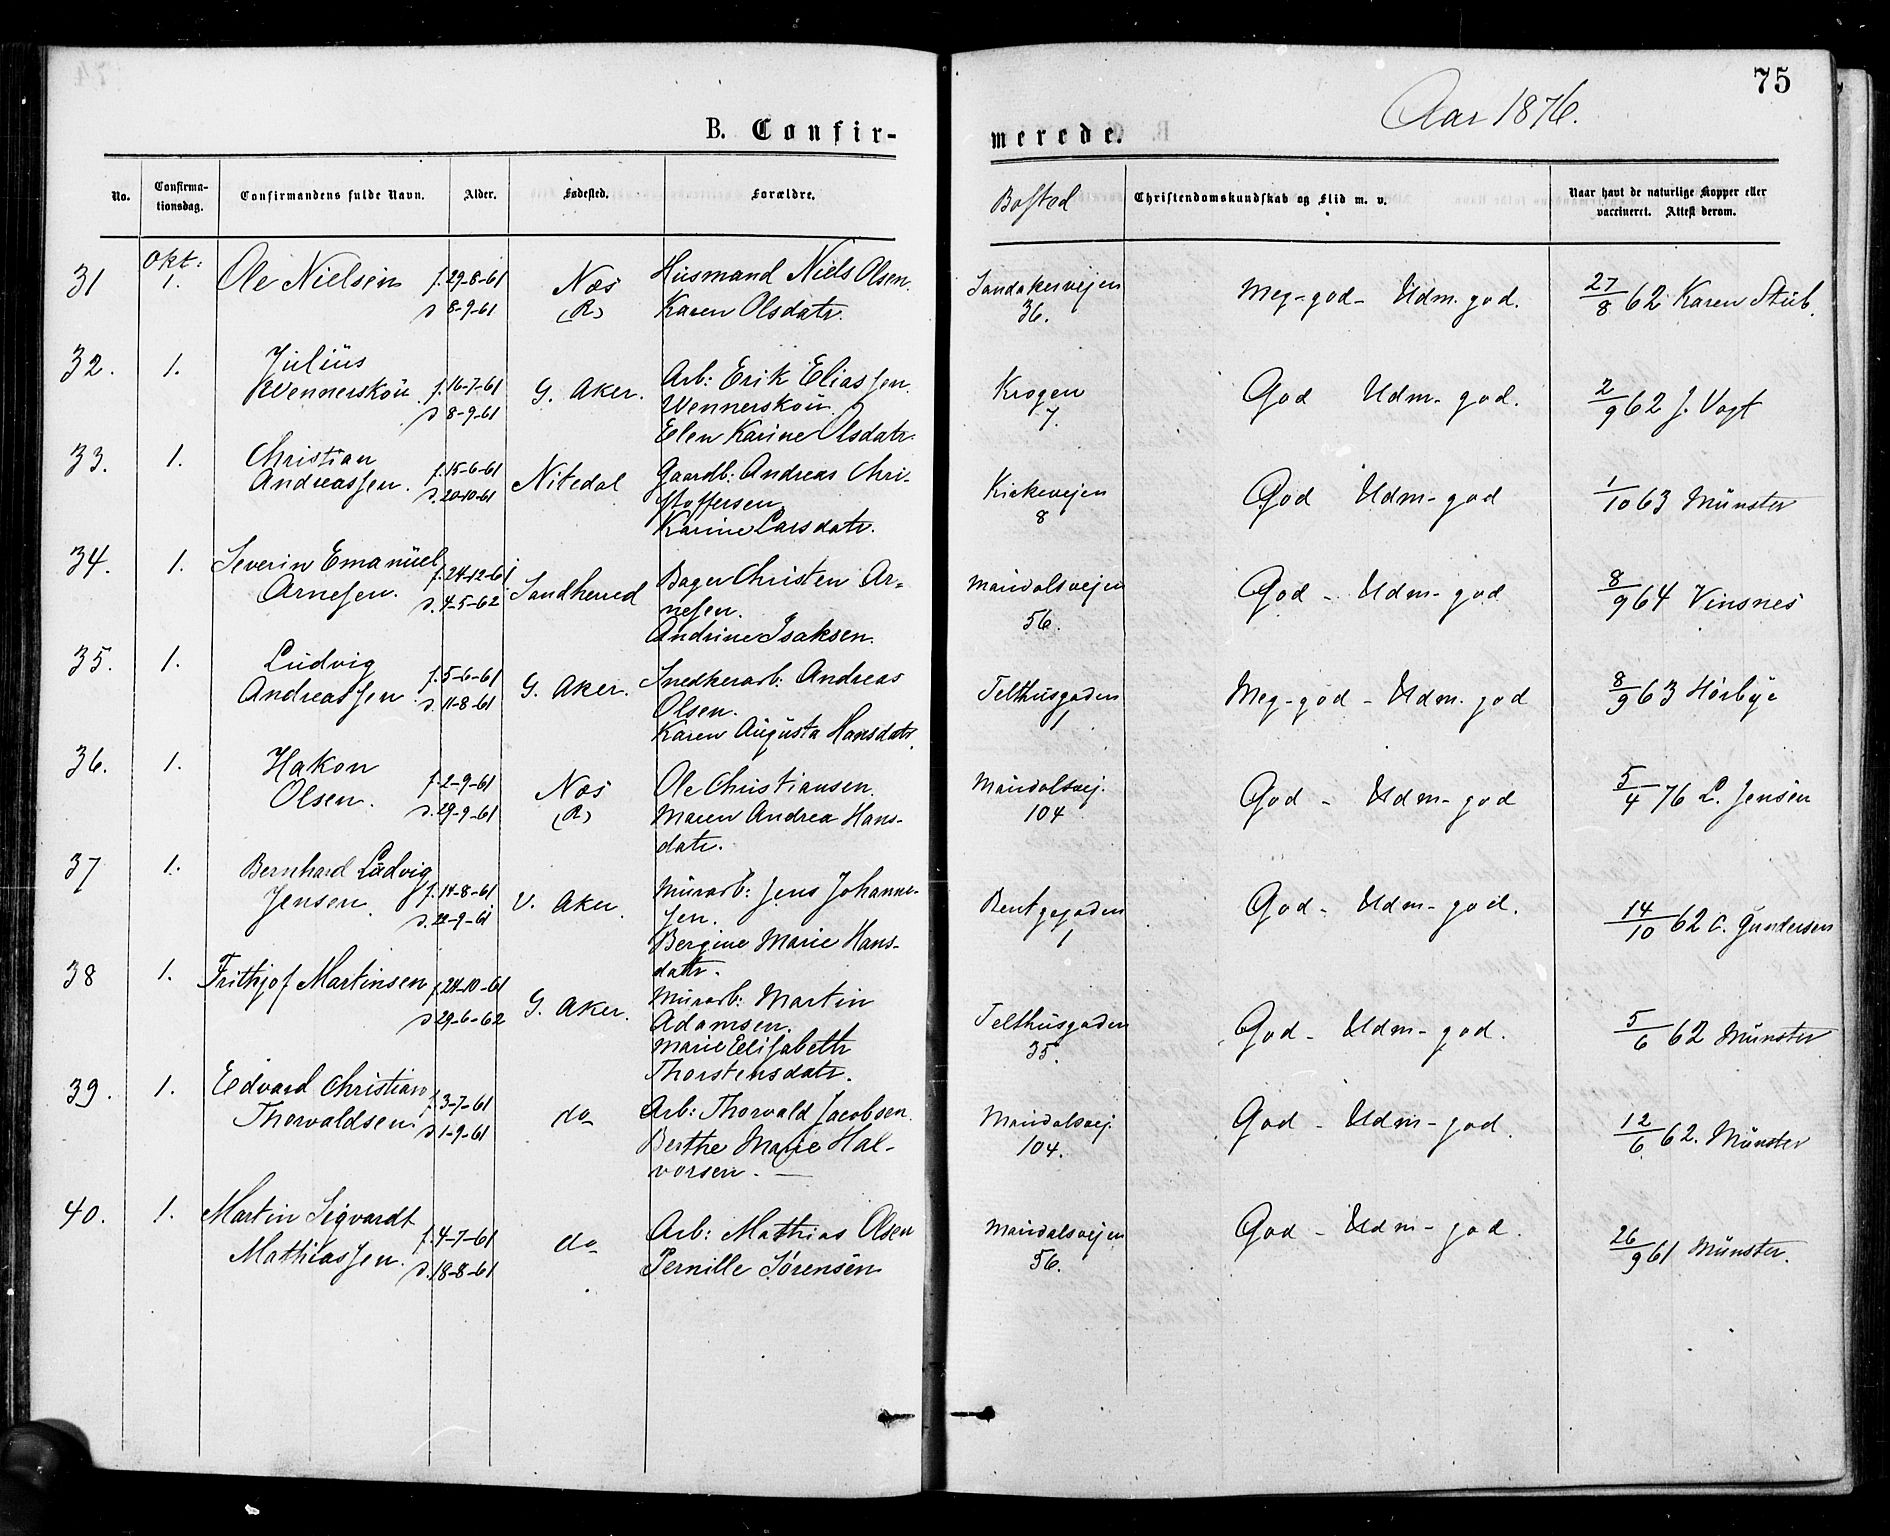 75
Aar 1876.
B. Confir-
merede.
No.
Confirma-
tionsdag.
Confirmandens fulde Navn.
Alder.
Fødested.
Forældre.
Bosted
Christendomskundskab og Flid m. v.
Naar havt de naturlige Kopper eller
vaccineret. Attest derom.
31 Okt: 1. Ole Nielsen f. 29-8-61 Næs Husmand Niels Olsen. Sandakervejen Meg-god- Udm. god. 27/8 62 Karen Stub.
d 8-9-61 (R) Karen Olsdatr. 36.
32. 1. Julius
Wennerskou f. 16-7-61 G. Aker. Arb: Erik Eliassen Krogen God Udm- god. 2/9 62 J. Vogt
d 8-9-61 Wennerskou. 7.
Elen Karine Olsdatr.
33. 1. Christian
Andreassen. f. 15-6-61 Nitedal Gaardb: Andreas Chri- Kirkevejen God Udm-god 1/10 63 Münster
d. 20-10-61 stoffersen 8
Karine Larsdatr.
34. 1. Severin Emanuel f. 24-12-61 Sandherred Bager Christen Ar- Maridalsvejen God - Udm-god 8/9 64 Vinsnes
Arnesen. d. 4-5-62 nesen. 56.
Andrine Isaksen.
35. 1. Ludvig f. 5-6-61 G. Aker. Snedkerarb. Andreas Telthusgaden Meg-god - Udm. god 8/9 63 Hørbye
Andreassen d. 11-8-61 Olsen. 1
Karen Augusta Hansdatr.
36. 1. Hakon f. 2-9-61 Næs Ole Christiansen. Maridalsvej. God - Udm-god 5/4 76 L. Jensen
Olsen. d. 29-9-61 (R) Maren Andrea Hans- 104
datr.
37 1. Bernhard Ludvig f. 14-8-61 V. Aker. Murarb: Jens Johanne- Bentsegaden God- Udm-god. 14/10 62 C. Gundersen
Jensen. d. 22-9-61 sen. 1
Bergine Marie Hans-
datr.
38 1. Frithjof Martinsen f. 24-10-61 G. Aker. Murarb: Martin Telthusgaden God- Udm-god. 5/6 62 Münster
d 29-6-62 Adamsen. 35.
Marie Elisabeth
Thorstensdatr.
39. 1. Edvard Christian f. 3-7-61 do Arb: Thorvald Jacobsen. Maridalsvej God - Udm-god. 12/6 62. Münster
Thorvaldsen. d 1-9-61 Berthe Marie Hal- 104.
vorsen. -
40. 1. Martin Sigvardt f. 4-7-61 do Arb: Mathias Olsen Maridalsvejen God - Udm- god. 26/9 61 Münster.
Mathiassen. d. 18-8-61 Pernille Sørensen 56.